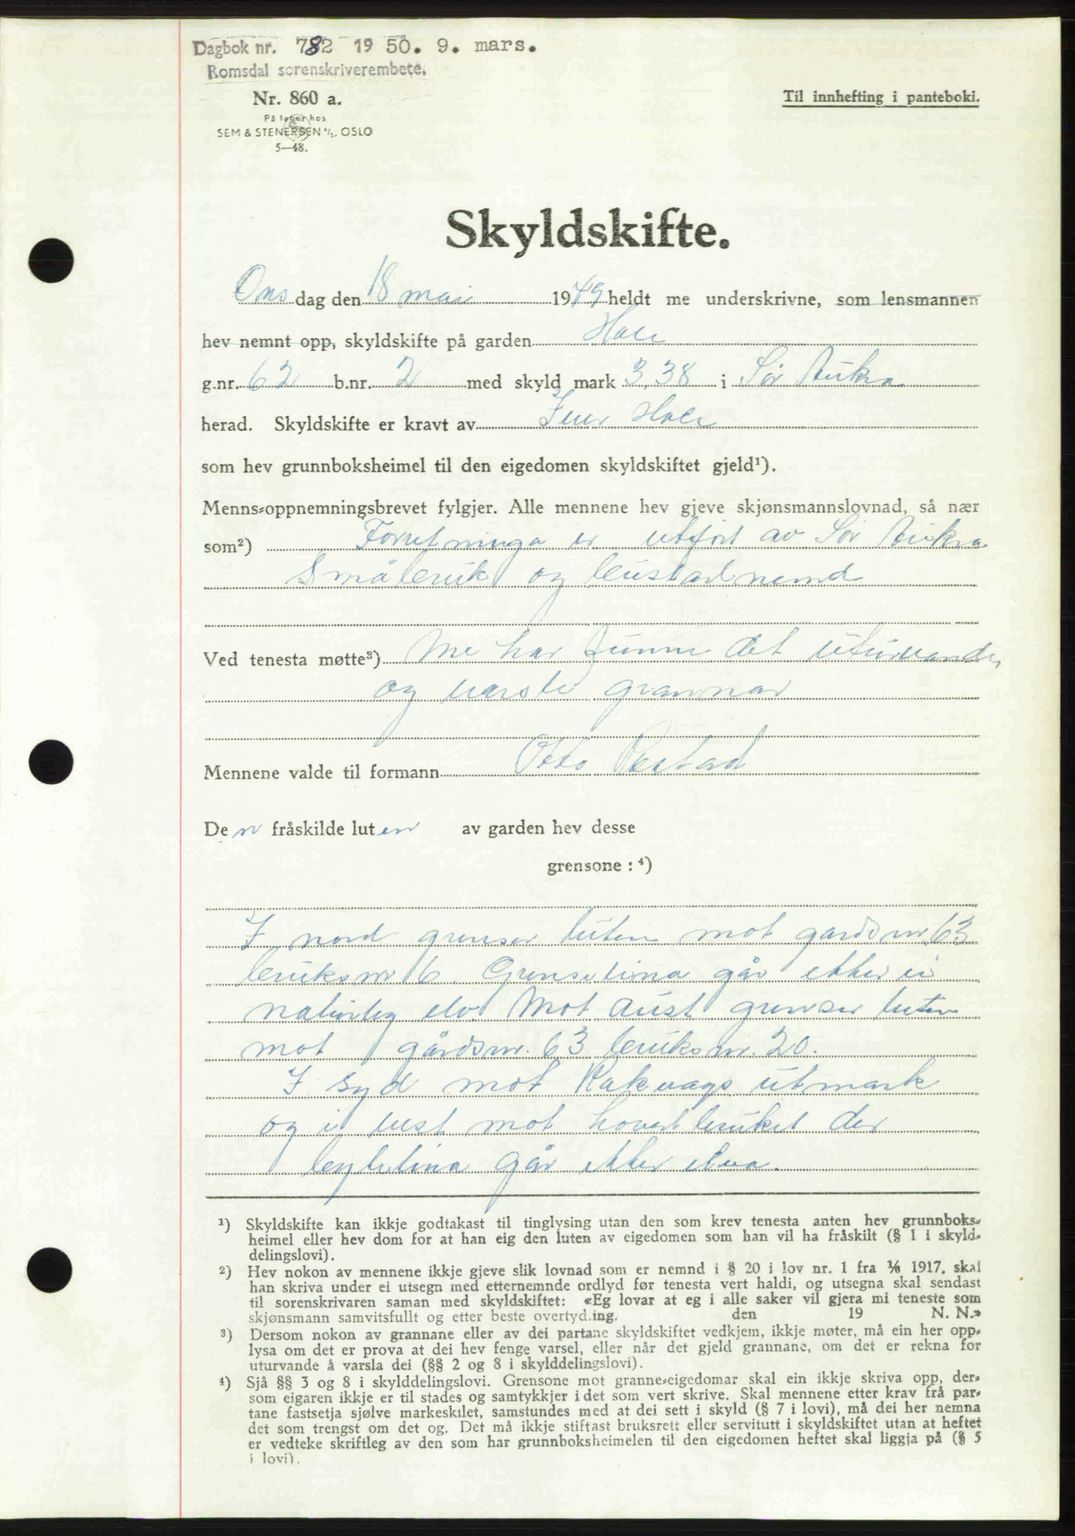 Dagbok nr. 782 1950. 9. mars.
Romsdal sorenskriverembete.
Nr. 860 a.
Til innhefting i panteboki.
På lager hos
SEM & STENERSEN A/S. OSLO
5—48.
Skyldskifte.
Onsdag den 18 mai 1949 heldt me underskrivne, som lensmannen
hev nemnt opp, skyldskifte på garden Hole
g.nr. 62 b.nr. 2 med skyld mark 3.38 i Sør Aukra
herad. Skyldskifte er kravt av Iver Hole
som hev grunnboksheimel til den eigedomen skyldskiftet gjeld¹).
Menns-oppnemningsbrevet fylgjer. Alle mennene hev gjeve skjønsmannslovnad, så nær
som²) Forretninga er utført av Sør Aukra
Småbruk og bustadnemd
Ved tenesta møtte³) Me har funne det uturvande
og varsle grannar
Mennene valde til formann Otto
Den fråskilde luten av garden hev desse
grensone : ⁴)
I nord grenser luten mot gardsnr. 63
bruksnr 6 Grenselina går etter ei
naturleg elv Mot aust grenser luten
mot gårdsnr. 63 bruksnr. 20.
I syd mot Rakvågs utmark
og i vest mot hovedbruket der
bytelina går etter elva.
¹) Skyldskifte kan ikkje godtakast til tinglysing utan den som krev tenesta anten hev grunnboks-
heimel eller hev dom for at han eig den luten av eigedomen som han vil ha fråskilt (§ 1 i skyld-
delingslovi).
²) Hev nokon av mennene ikkje gjeve slik lovnad som er nemnd i § 20 i lov nr. 1 fra 1/6 1917, skal
han skriva under ei utsegn med etternemnde ordlyd før tenesta vert haldi, og utsegna skal sendast
til sorenskrivaren saman med skyldskiftet: «Eg lovar at eg i alle saker vil gjera mi teneste som
skjønsmann samvitsfullt og etter beste overtyding. den 19 N. N.»
³) Dersom nokon av grannane eller av dei partane skyldskiftet vedkjem, ikkje møter, må ein her opp-
lysa om det er prova at dei hev fenge varsel, eller når det gjeld grannane, om det er rekna for
uturvande å varsla dei (§§ 2 og 8 i skylddelingslovi).
⁴) Sjå §§ 3 og 8 i skylddelingslovi. Grensone mot granne-eigedomar skal ein ikkje skriva opp, der-
som eigaren ikkje er til stades og samtykkjer i det som vert skrive. Skal mennene etter krav frå par-
tane fastsetja sjølve markeskilet, samstundes med at dei sett i skyld (§ 7 i lovi), må dei her nemna
det som trengst om det og. Det må ikkje stiftast bruksrett eller servitutt i skyldskiftet utan at heftet
er vedteke skriftleg av den som har grunnboksheimelen til den eigedomen heftet skal liggja på (§ 5
i lovi).